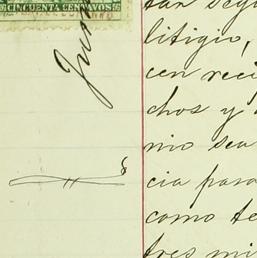 CINCUENTA CENTAVOS
tan segu
litigio,
cen reci
chos y
nio sea
cia para
como te
tres mi